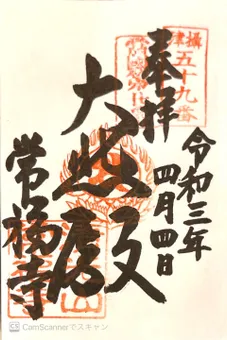 攝津
五十九番
奉拝
令和三年
四月四日
大悲殿
常福寺
CS CamScannerでスキャン